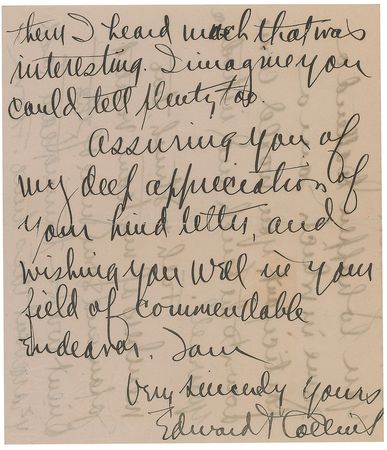 them I heard much that was
interesting. I imagine you
could tell plenty, too.
Assuring you of
my deep appreciation of
your kind letter, and
wishing you well in your
field of commendable
Endeavor, I am
Very sincerely yours
Edward T Collins